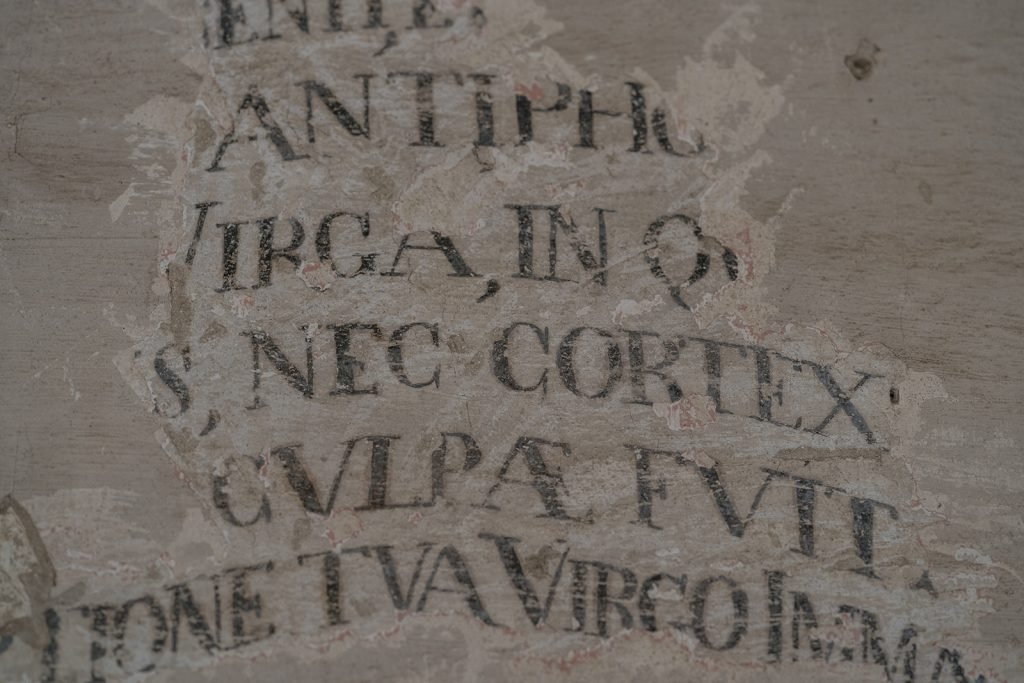 ENITE,
ANTIPHO
VIRGA, IN Q
S, NEC CORTEX
CVLPÆ FVIT.
TIONE TVA VIRGO IMMA